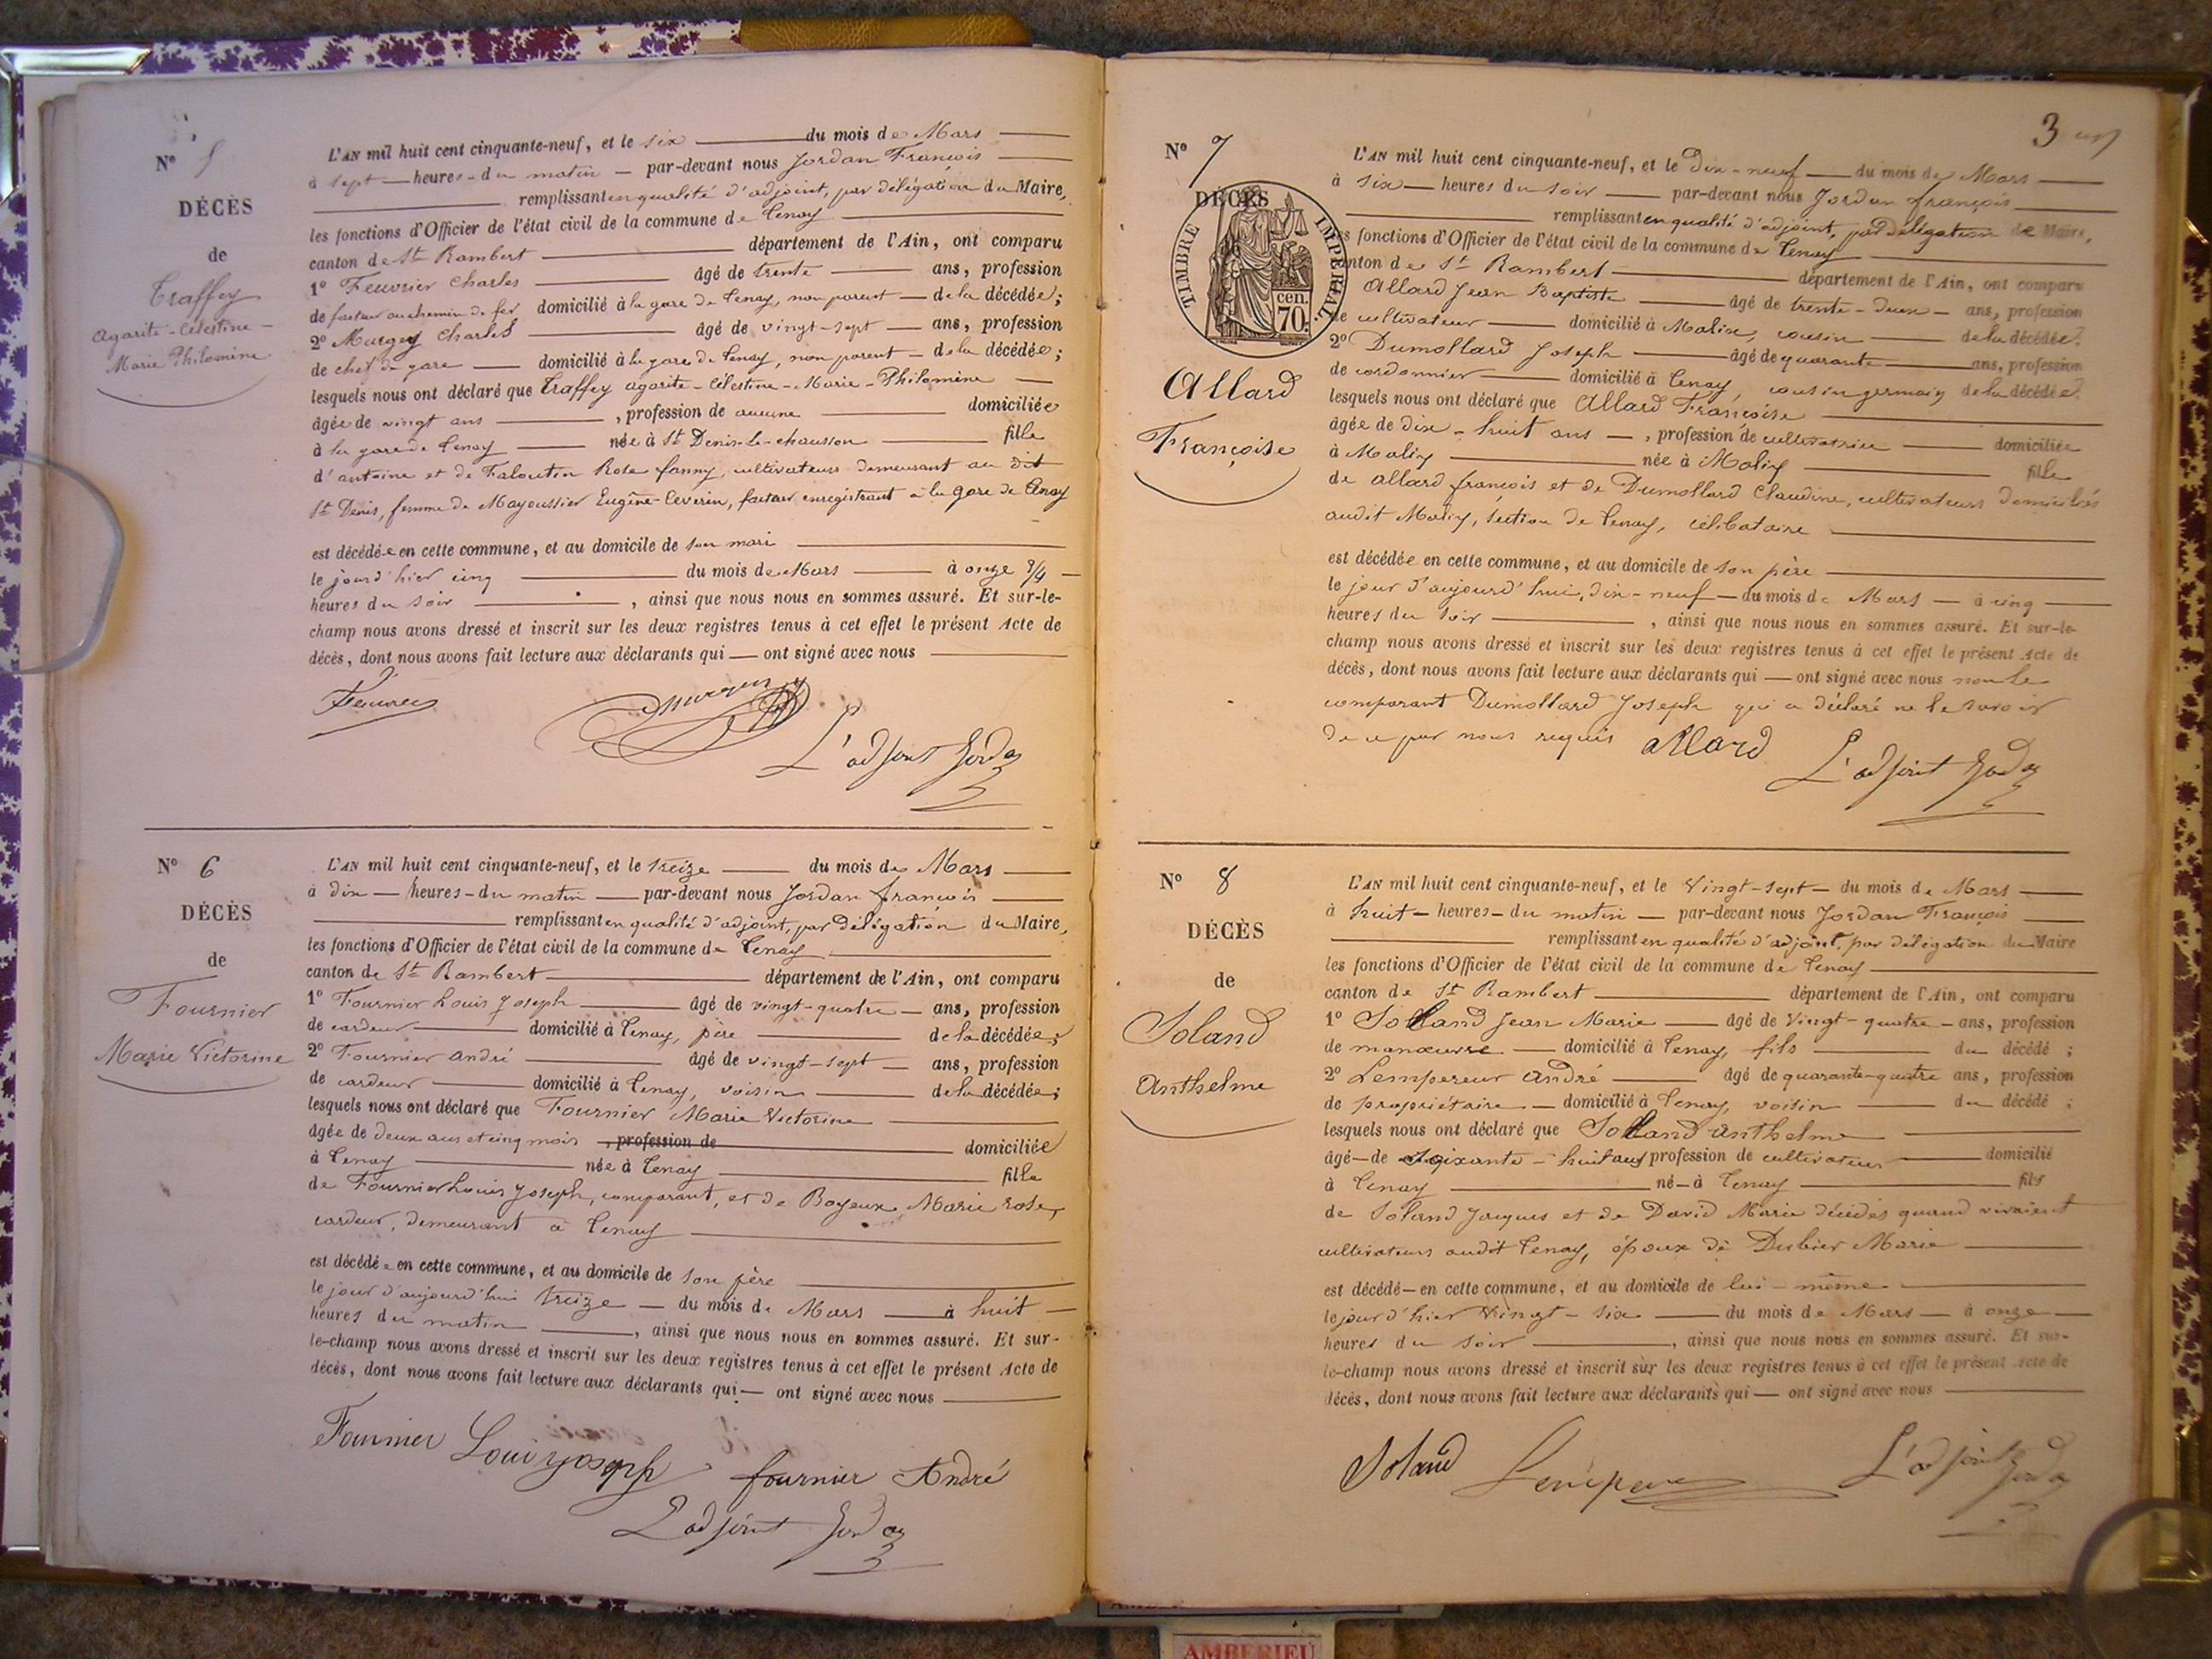 N° 5
DÉCÈS
de
Traffey
agarite-Célestine-
Marie Philomène
L'AN mil huit cent cinquante-neuf, et le six du mois de Mars
à sept heures du matin par-devant nous Jordan François
remplissant en qualité d'adjoint, par délégation du Maire,
les fonctions d'Officier de l'état civil de la commune de Tenay
canton de St Rambert département de l'Ain, ont comparu
1° Feuvrier Charles âgé de trente ans, profession
de facteur au chemin de fer domicilié à la gare de Tenay, non parent de la décédée;
2° Murgey Charles âgé de vingt-sept ans, profession
de chef de gare domicilié à la gare de Tenay, non parent de la décédée;
lesquels nous ont déclaré que Traffey agarite-Célestine-Marie-Philomène
âgée de vingt ans , profession de aucune domiciliée
à la gare de Tenay née à St Denis-le-chausson fille
d'antoine et de Faloutin Rose fanny, cultivateurs demeurant au dit
St Denis, femme de Mayoussier Eugène-Ceverin, facteur enregistrant à la gare de Tenay
est décédée en cette commune, et au domicile de son mari
le jour d'hier cinq du mois de Mars à onze 3/4
heures du soir , ainsi que nous nous en sommes assuré. Et sur-le-
champ nous avons dressé et inscrit sur les deux registres tenus à cet effet le présent Acte de
décès, dont nous avons fait lecture aux déclarants qui — ont signé avec nous
Feuvrier Murgey
L'adjoint Jordan
N° 6
DÉCÈS
de
Fournier
Marie Victorine
L'AN mil huit cent cinquante-neuf, et le treize du mois de Mars
à dix heures du matin par-devant nous Jordan françois
remplissant en qualité d'adjoint, par délégation du Maire,
les fonctions d'Officier de l'état civil de la commune de Tenay
canton de St Rambert département de l'Ain, ont comparu
1° Fournier Louis Joseph âgé de vingt-quatre ans, profession
de cardeur domicilié à Tenay, père de la décédée;
2° Fournier andré âgé de vingt-sept ans, profession
de cardeur domicilié à Tenay, voisin de la décédée;
lesquels nous ont déclaré que Fournier Marie Victorine
âgée de deux ans et cinq mois , profession de domiciliée
à Tenay née à Tenay fille
de Fournier Louis Joseph, comparant, et de Boyeux Marie rose,
cardeur, demeurant à Tenay
est décédée en cette commune, et au domicile de son père
le jour d'aujourd'hui treize du mois de Mars à huit
heures du matin , ainsi que nous nous en sommes assuré. Et sur-
le-champ nous avons dressé et inscrit sur les deux registres tenus à cet effet le présent Acte de
décès, dont nous avons fait lecture aux déclarants qui — ont signé avec nous
Fournier Louis joseph fournier André
L'adjoint Jordan
3
N° 7
DÉCÈS
TIMBRE IMPÉRIAL.
cen.
70.
Allard
Françoise
L'AN mil huit cent cinquante-neuf, et le dix-neuf du mois de Mars
à six heures du soir par-devant nous Jordan françois
remplissant en qualité d'adjoint, par délégation du Maire,
les fonctions d'Officier de l'état civil de la commune de Tenay
canton de St Rambert département de l'Ain, ont comparu
Allard Jean Baptiste âgé de trente-deux ans, profession
de cultivateur domicilié à Malix, cousin de la décédée;
2° Dumollard Joseph âgé de quarante ans, profession
de cordonnier domicilié à Tenay, cousin germain de la décédée;
lesquels nous ont déclaré que Allard Françoise
âgée de dix-huit ans , profession de cultivatrice domiciliée
à Malix née à Malix fille
de allard françois et de Dumollard Claudine, cultivateurs domiciliés
audit Malix, section de Tenay, célibataire
est décédée en cette commune, et au domicile de son père
le jour d'aujourd'hui, dix-neuf du mois de Mars à cinq
heures du soir , ainsi que nous nous en sommes assuré. Et sur-le-
champ nous avons dressé et inscrit sur les deux registres tenus à cet effet le présent Acte de
décès, dont nous avons fait lecture aux déclarants qui — ont signé avec nous non le
comparant Dumollard Joseph qui a déclaré ne le savoir
de ce par nous requis allard
L'adjoint Jordan
N° 8
DÉCÈS
de
Soland
Anthelme
L'AN mil huit cent cinquante-neuf, et le Vingt-sept du mois de Mars
à huit heures du matin par-devant nous Jordan François
remplissant en qualité d'adjoint, par délégation du Maire
les fonctions d'Officier de l'état civil de la commune de Tenay
canton de St Rambert département de l'Ain, ont comparu
1° Soland Jean Marie âgé de Vingt-quatre ans, profession
de manœuvre domicilié à Tenay, fils du décédé ;
2° Lempereur André âgé de quarante-quatre ans, profession
de propriétaire domicilié à Tenay, voisin du décédé ;
lesquels nous ont déclaré que Soland Anthelme
âgé de soixante-huit ans profession de cultivateur domicilié
à Tenay né à Tenay fils
de Soland Jacques et de David Marie décédés quand vivaient
cultivateurs audit Tenay, époux de Dubier Marie
est décédé en cette commune, et au domicile de lui-même
le jour d'hier Vingt-six du mois de Mars à onze
heures du soir , ainsi que nous nous en sommes assuré. Et sur-
le-champ nous avons dressé et inscrit sur les deux registres tenus à cet effet le présent Acte de
décès, dont nous avons fait lecture aux déclarants qui — ont signé avec nous
Soland Lempereur L'adjoint Jordan
AMBERIEU